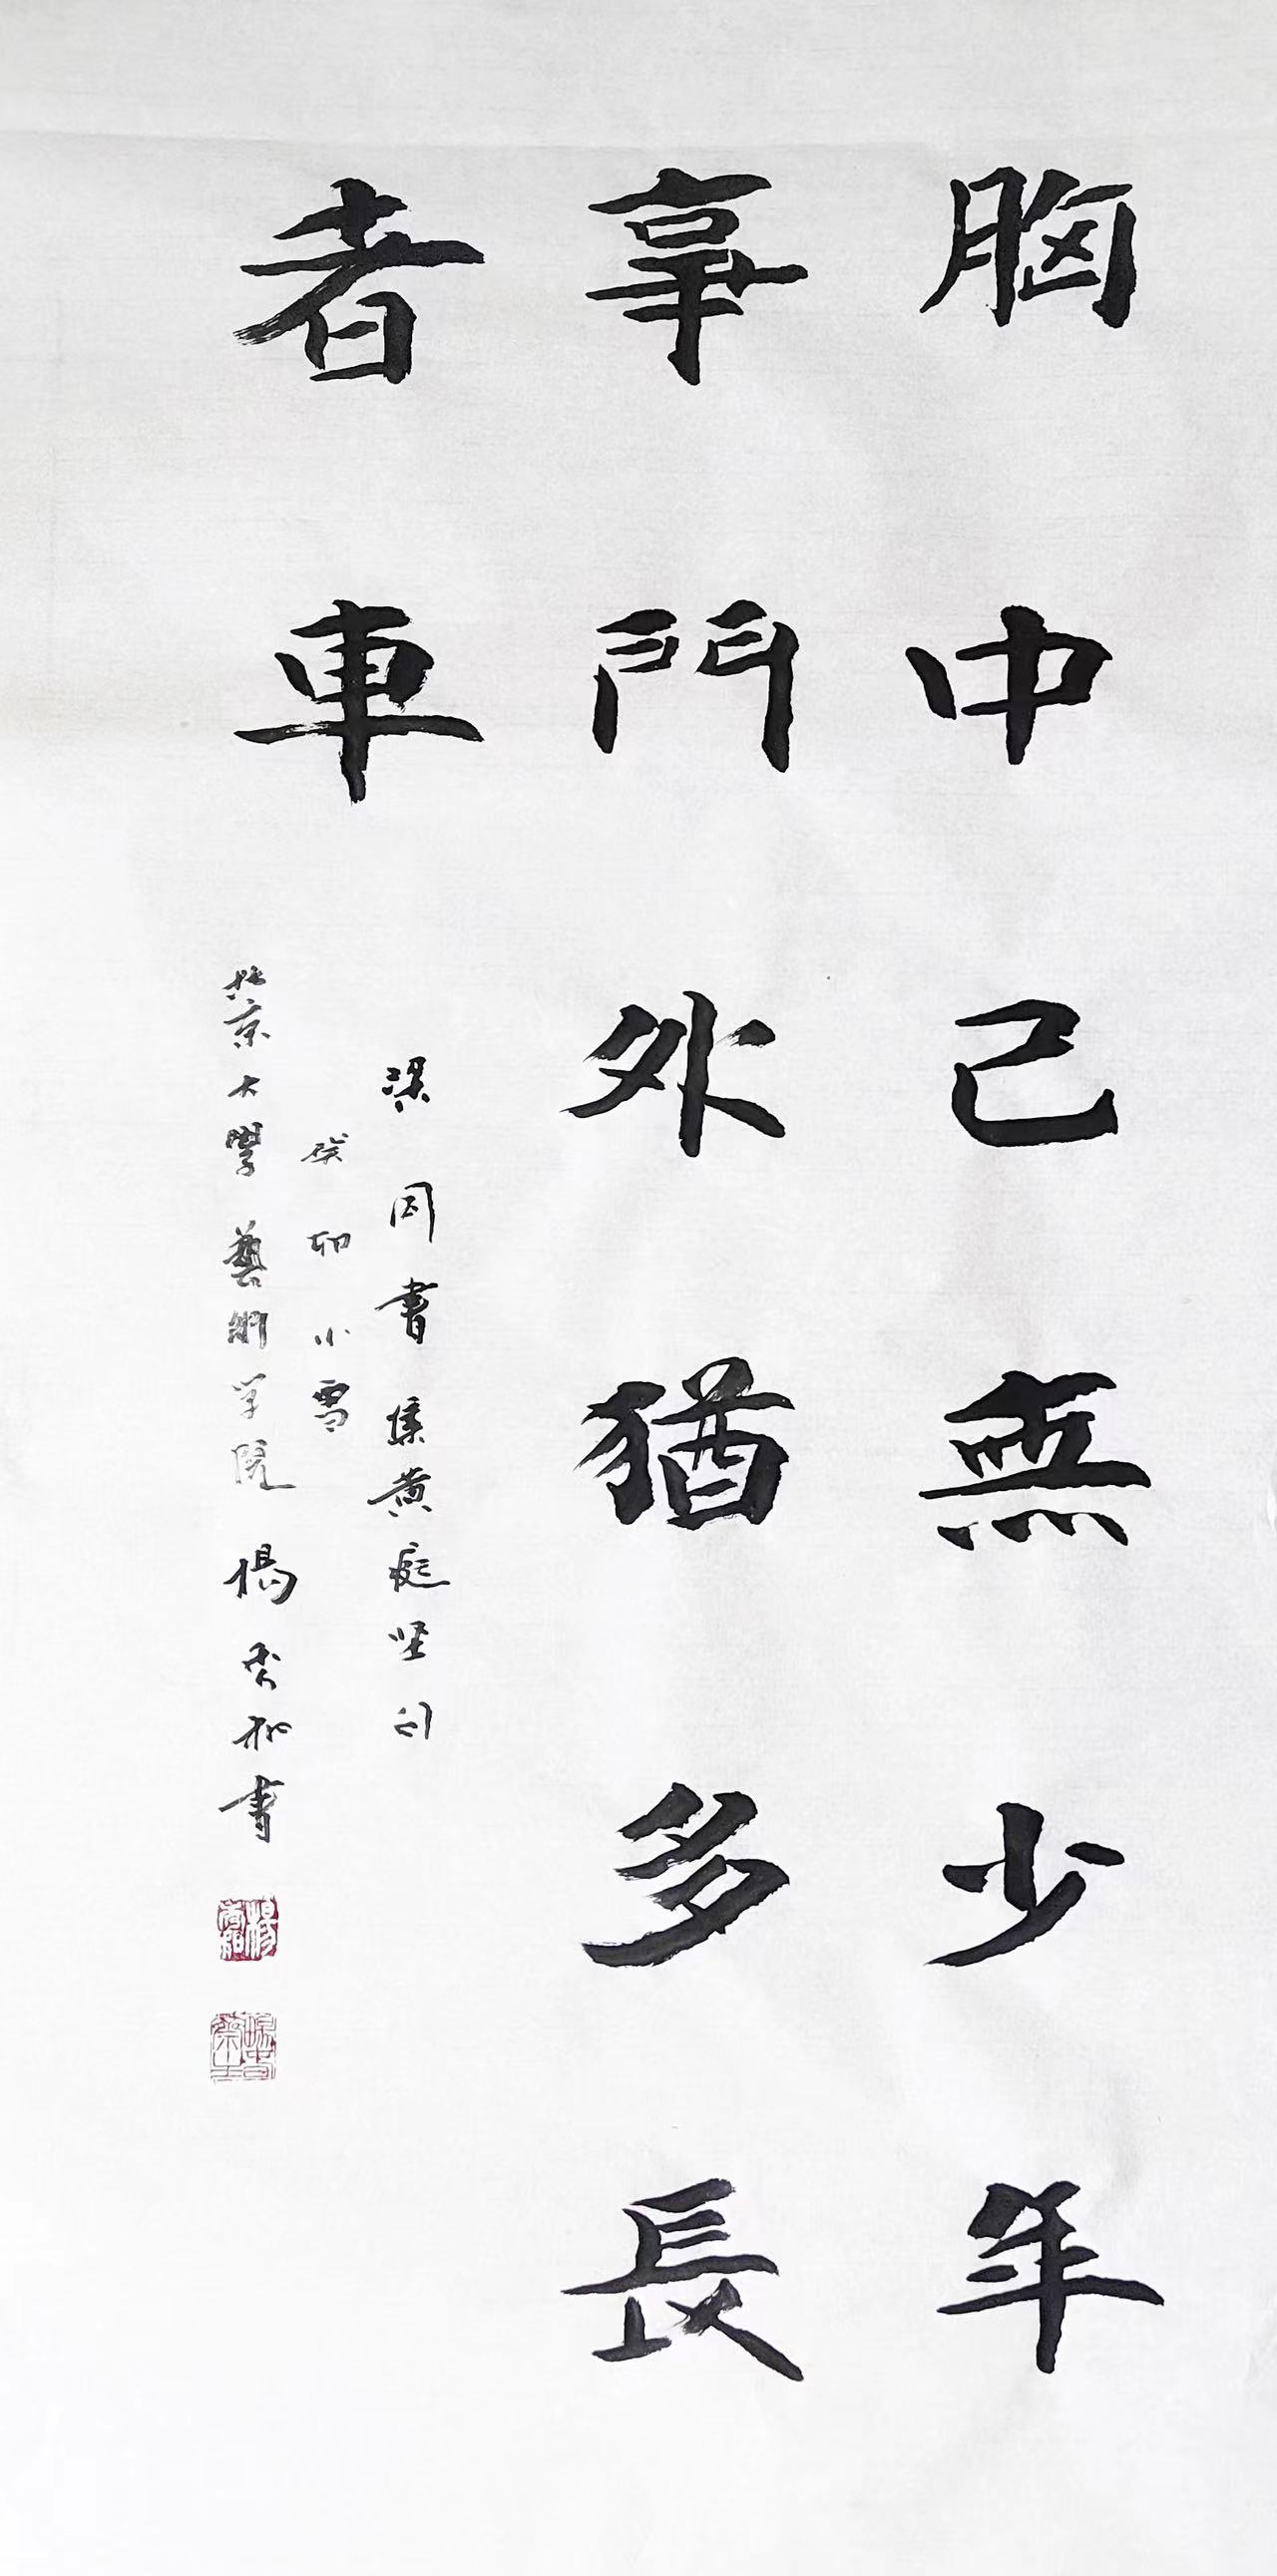 胸中已無少年
事門外猶多長
者車
梁同書集黄庭坚句
癸卯小雪
北京大學藝術学院楊秀和書